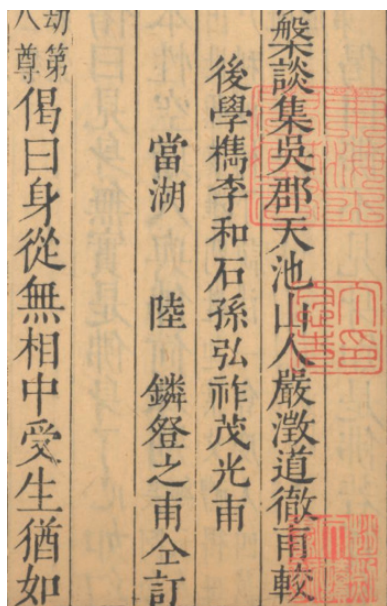 槃談集吳郡天池山人嚴澂道徹甫較
後學檇李和石孫弘祚茂光甫
當湖　陸　鏻登之甫仝訂
劫第
八尊
偈曰身從無相中受生猶如